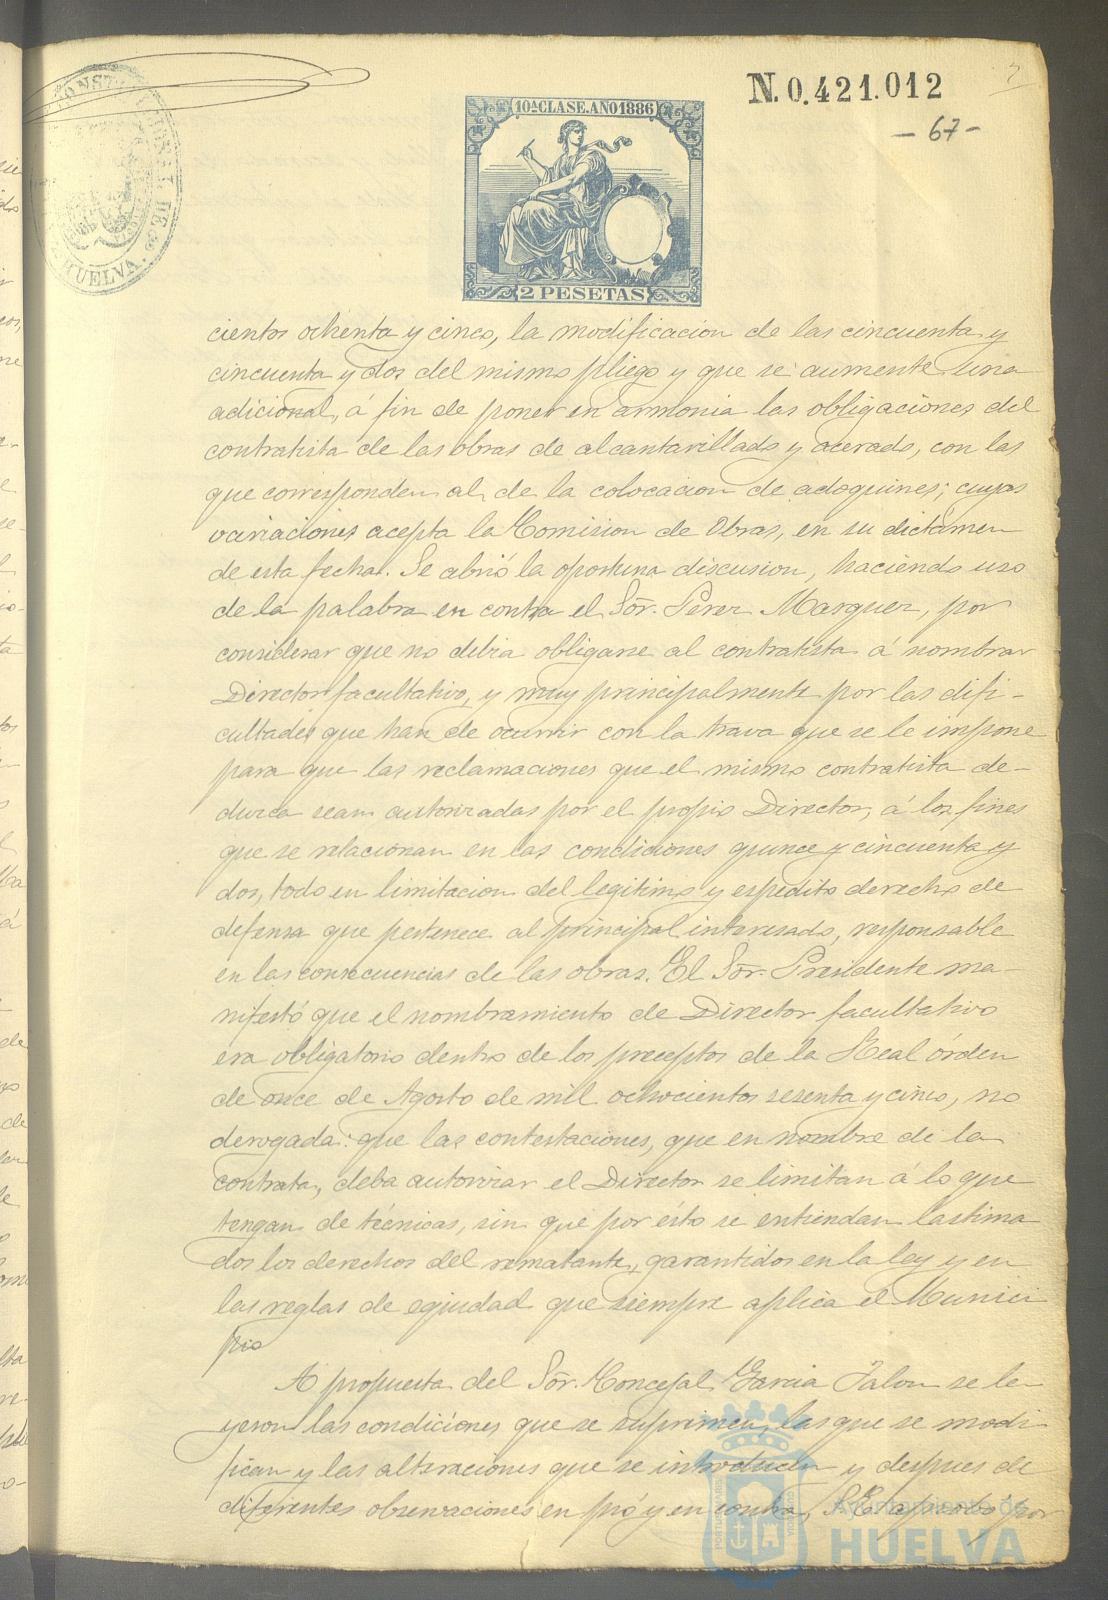 N.0.421.012
- 67 -
10ª CLASE. AÑO 1886
2 PESETAS
CONSTITUCIONAL DE
HUELVA.
cientos ochenta y cinco, la modificacion de las cincuenta y
cincuenta y dos del mismo pliego y que se aumente una
adicional, á fin de poner en armonia las obligaciones del
contratista de las obras de alcantarillado y acerado, con las
que corresponden al de la colocacion de adoquines; cuyas
variaciones acepta la Comision de Obras, en su dictámen
de esta fecha. Se abrió la oportuna discusion, haciendo uso
de la palabra en contra el Sór. Perez Marquez, por
considerar que no debia obligarse al contratista á nombrar
Director facultativo, y muy principalmente por las difi-
cultades que han de ocurrir con la trava que se le impone
para que las reclamaciones que el mismo contratista de-
duzca sean autorizadas por el propio Director, á los fines
que se relacionan en las condiciones quince y cincuenta y
dos, todo en limitacion del legitimo y espedito derecho de
defensa que pertenece al principal interesado, responsable
en las consecuencias de las obras. El Sór. Presidente ma-
nifestó que el nombramiento de Director facultativo
era obligatorio dentro de los preceptos de la Real órden
de once de Agosto de mil ochocientos sesenta y cinco, no
derogada: que las contestaciones, que en nombre de la
contrata, deba autorizar el Director se limitan á lo que
tengan de técnicas, sin que por ésto se entiendan lastima
dos los derechos del rematante, garantidos en la ley y en
las reglas de equidad que siempre aplica el Munici
pio
A propuesta del Sór. Concejal Garcia Jalon se le
yeron las condiciones que se suprimen, las que se modi
fican y las alteraciones que se introducen y despues de
diferentes observaciones en pró y en contra, S.E. aprobó por
Ayuntamiento de
HUELVA